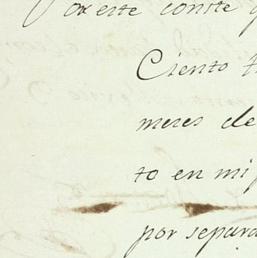 Por este conste
Ciento
meces de
to en mi
por separa